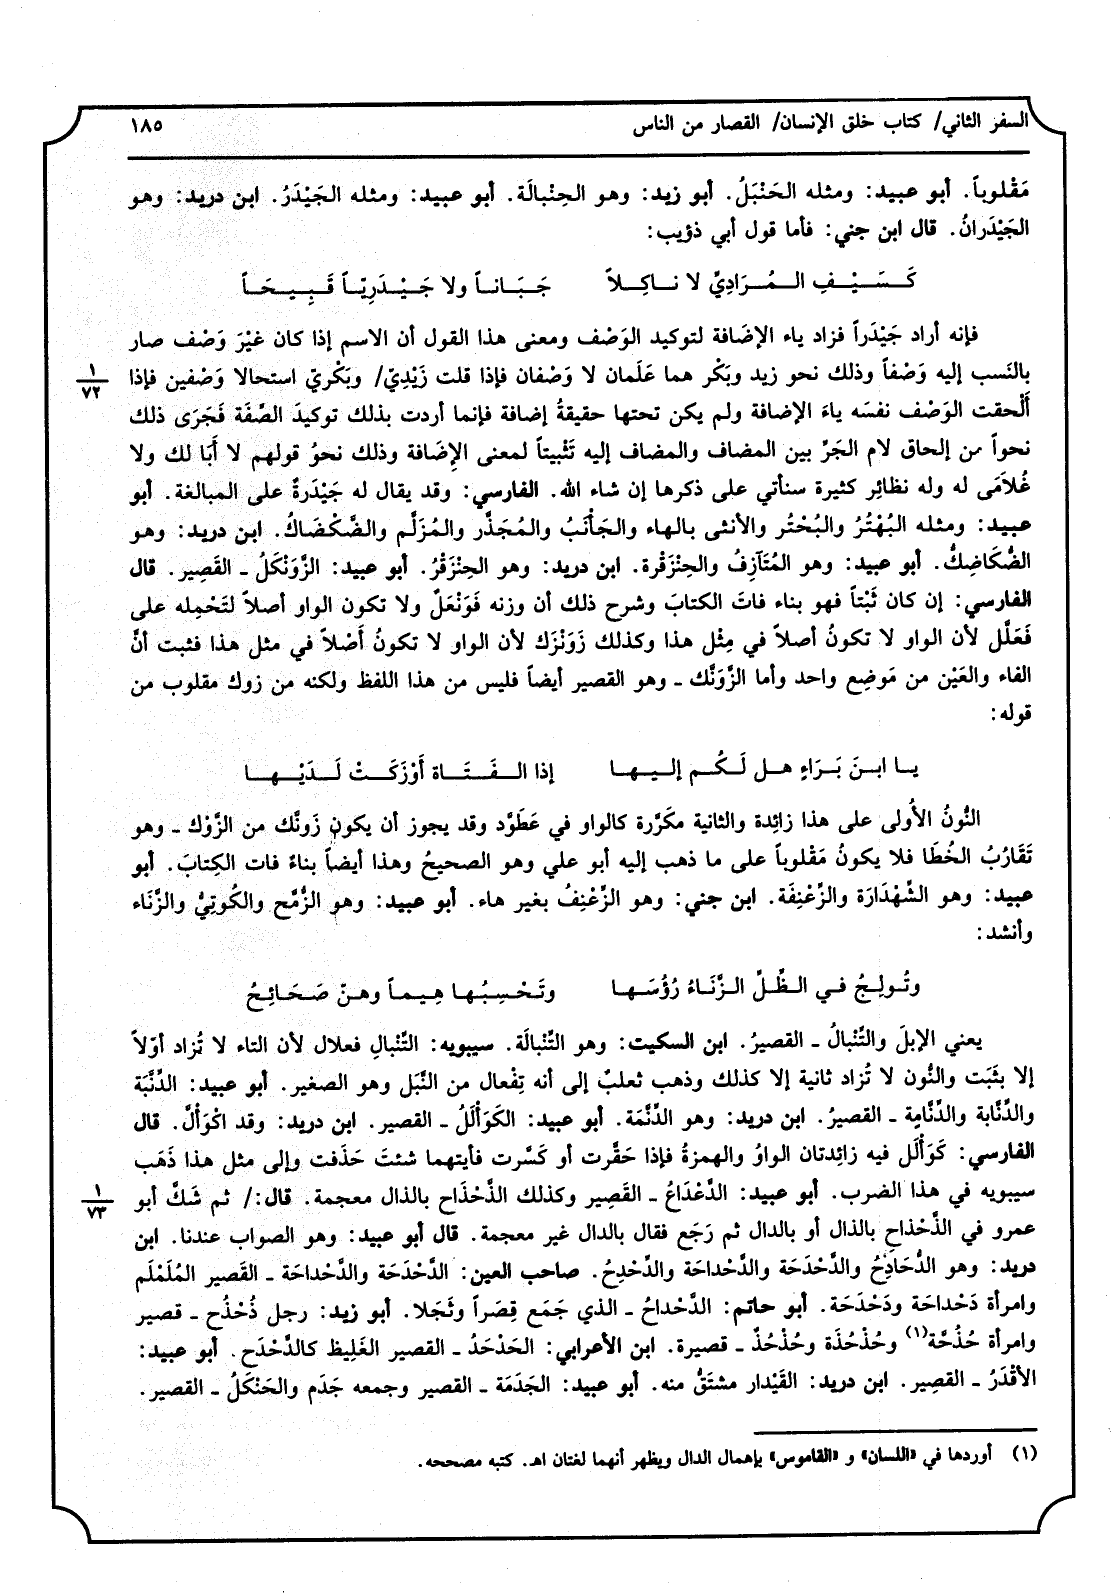 السفر الثاني/ كتاب خلق الإنسان/ القصار من الناس ١٨٥
مَقْلوباً. أبو عبيد: ومثله الحَنْبَلُ. أبو زيد: وهو الحِنْبالَة. أبو عبيد: ومثله الجَيْدَرُ. ابن دريد: وهو
الجَيْدَرانُ. قال ابن جني: فأما قول أبي ذؤيب:
كَسَيْفِ المُرَادِيِّ لا ناكِلاً جَبَاناً ولا جَيْدَرِيّاً قَبِيحَاً
فإنه أراد جَيْدَراً فزاد ياء الإضَافة لتوكيد الوَصْف ومعنى هذا القول أن الاسم إذا كان غيْرَ وَصْف صار
بالنَسب إليه وَصْفاً وذلك نحو زيد وبَكْر هما عَلَمان لا وَصْفان فإذا قلت زَيْدِيّ/ وبَكْرِيّ استحالا وَصْفين فإذا
١
٧٢
أَلْحقت الوَصْف نفسَه ياءَ الإضافة ولم يكن تحتها حقيقةُ إضافة فإنما أردت بذلك توكيدَ الصِّفَة فَجَرَى ذلك
نحواً من إلحاق لام الجَرِّ بين المضاف والمضاف إليه تَثْبيتاً لمعنى الإضَافة وذلك نحوُ قولهم لا أَبَا لك ولا
غُلاَمَى له وله نظائِر كثيرة سنأتي على ذكرها إن شاء الله. الفارسي: وقد يقال له جَيْدَرةٌ على المبالغة. أبو
عبيد: ومثله البُهْتُرُ والبُحْتُر والأنثى بالهاء والجَأْنَبُ والمُجَذَّر والمُزَلَّم والضَّكْضَاكُ. ابن دريد: وهو
الضُّكَاضِكُ. أبو عبيد: وهو المُتَآزِفُ والحِنْزَقْرة. ابن دريد: وهو الحِنْزَقْرُ. أبو عبيد: الزَّوَنْكَلُ ـ القَصِير. قال
الفارسي: إن كان ثَبْتاً فهو بناء فاتَ الكتابَ وشرح ذلك أن وزنه فَوَنْعَلٌ ولا تكون الواو أصلاً لتَحْمِله على
فَعَلَّل لأن الواو لا تكونُ أصلاً في مِثْل هذا وكذلك زَوَنْزَك لأن الواو لا تكونُ أصْلاً في مثل هذا فثبت أنَّ
الفاء والعَيْن من مَوضِع واحد وأما الزَّوَنَّك ـ وهو القصير أيضاً فليس من هذا اللفظ ولكنه من زوك مقلوب من
قوله:
يا ابنَ بَرَاءِ هل لَكُم إليها إذا الفَتَاة أَوْزَكَتْ لَدَيْها
النُّونُ الأُولى على هذا زائِدة والثانية مكَرَّرة كالواو في عَطَوَّد وقد يجوز أن يكون زَونَّك من الزَّوْك ـ وهو
تَقَارُبُ الخُطَا فلا يكونُ مَقْلوباً على ما ذهب إليه أبو علي وهو الصحيحُ وهذا أيضاً بناءٌ فات الكِتابَ. أبو
عبيد: وهو الشِّهْدَارَة والزِّعْنِفَة. ابن جني: وهو الزِّعْنِفُ بغير هاء. أبو عبيد: وهو الزُّمَّح والكُوتِيُّ والزَّنَاء
وأنشد:
وتُولِجُ في الظِّلِّ الزَّنَاءُ رُؤُسَها وتَحْسِبُها هِيماً وهنّ صَحَائِحُ
يعني الإبلَ والتِّنْبالُ ـ القصيرُ. ابن السكيت: وهو التِّنْبالَة. سيبويه: التِّنْبالِ فعلال لأن التاء لا تُزاد أوّلاً
إلا بثَبَت والنُّون لا تُزاد ثانية إلا كذلك وذهب ثعلبٌ إلى أنه تِفْعال من النَّبَل وهو الصغير. أبو عبيد: الدِّنَّبَة
والدِّنَّابة والدِّنَّامِة ـ القصيرُ. ابن دريد: وهو الدِّنَّمَة. أبو عبيد: الكَوَأْلَلُ ـ القصير. ابن دريد: وقد اكْوَأَلَّ. قال
الفارسي: كَوَأْلَل فيه زائِدتان الواوُ والهمزةُ فإذا حَقَّرت أو كَسَّرت فأيتهما شئتَ حَذَفت وإلى مثل هذا ذَهَب
سيبويه في هذا الضرب. أبو عبيد: الدَّعْدَاعُ ـ القَصِير وكذلك الذَّحْذَاح بالذال معجمة. قال:/ ثم شَكَّ أبو
١
٧٣
عمرو في الذَّحْذاحِ بالذال أو بالدال ثم رَجَع فقال بالدال غير معجمة. قال أبو عبيد: وهو الصواب عندنا. ابن
دريد: وهو الدُّحَادِحُ والدَّحْدَحَة والدَّحْداحَة والدِّحْدِحُ. صاحب العين: الدَّحْدَحَة والدَّحْداحَة ـ القَصير المُلَمْلَم
وامرأة دَحْداحَة ودَحْدَحَة. أبو حاتم: الدَّحْداحُ ـ الذي جَمَع قِصَراً وثَجَلا. أبو زيد: رجل ذُحْذُح ـ قصير
وامرأة حُذُحَّة(١) وحُذْحُذَة وحُذْحُذٌ ـ قصيرة. ابن الأعرابي: الحَدْحَدُ ـ القصير الغَلِيظ كالدَّحْدَح. أبو عبيد:
الأقْدَرُ ـ القصِير. ابن دريد: القَيْدار مشتَقٌّ منه. أبو عبيد: الجَدَمَة ـ القصير وجمعه جَدَم والحَنْكَلُ ـ القصير.
(١) أوردها في «اللسان» و «القاموس» بإهمال الدال ويظهر أنهما لغتان اهـ. كتبه مصححه.